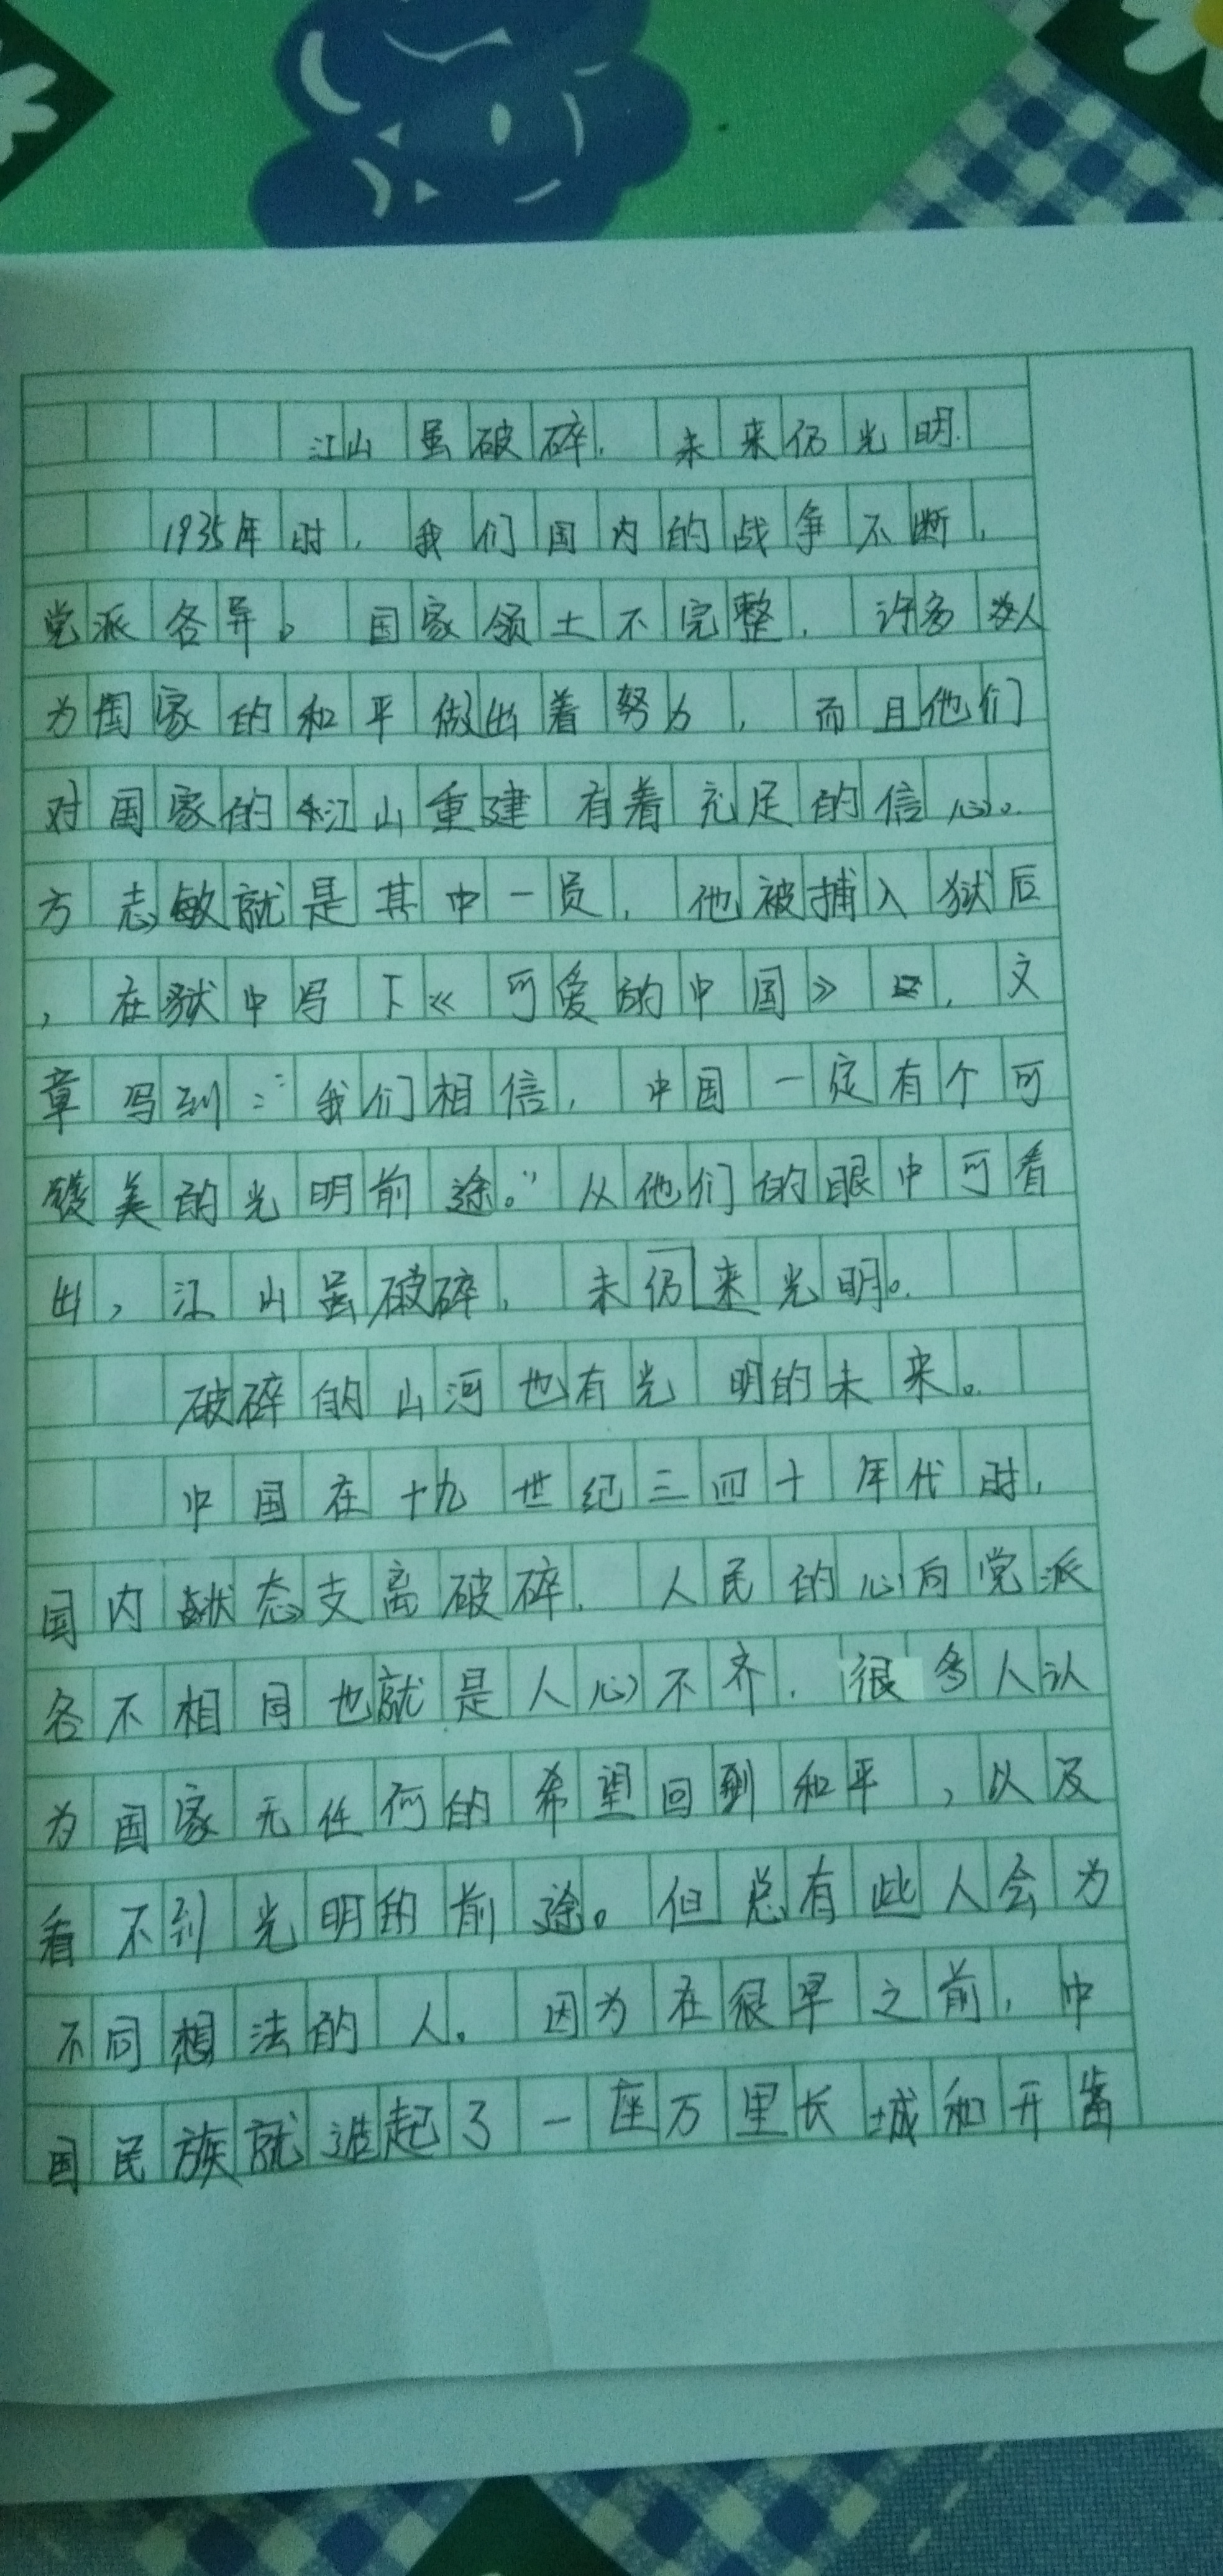 江山虽破碎，未来仍光明
1935年时，我们国内的战争不断，
党派各异。国家领土不完整，许多人
为国家的和平做出着努力，而且他们
对国家的江山重建有着充足的信心。
方志敏就是其中一员，他被捕入狱后
，在狱中写下《可爱的中国》，文
章写到：“我们相信，中国一定有个可
美的光明前途。”从他们的眼中可看
出，江山虽破碎，未仍来光明。
破碎的山河也有光明的未来。
中国在十九世纪三四十年代时，
国内状态支离破碎，人民的心向党派
各不相同也就是人心不齐，很多人认
为国家无任何的希望回到和平，以及
看不到光明的前途。但总有些人会为
不同想法的人。因为在很早之前，中
国民族就造起了一座万里长城和开凿